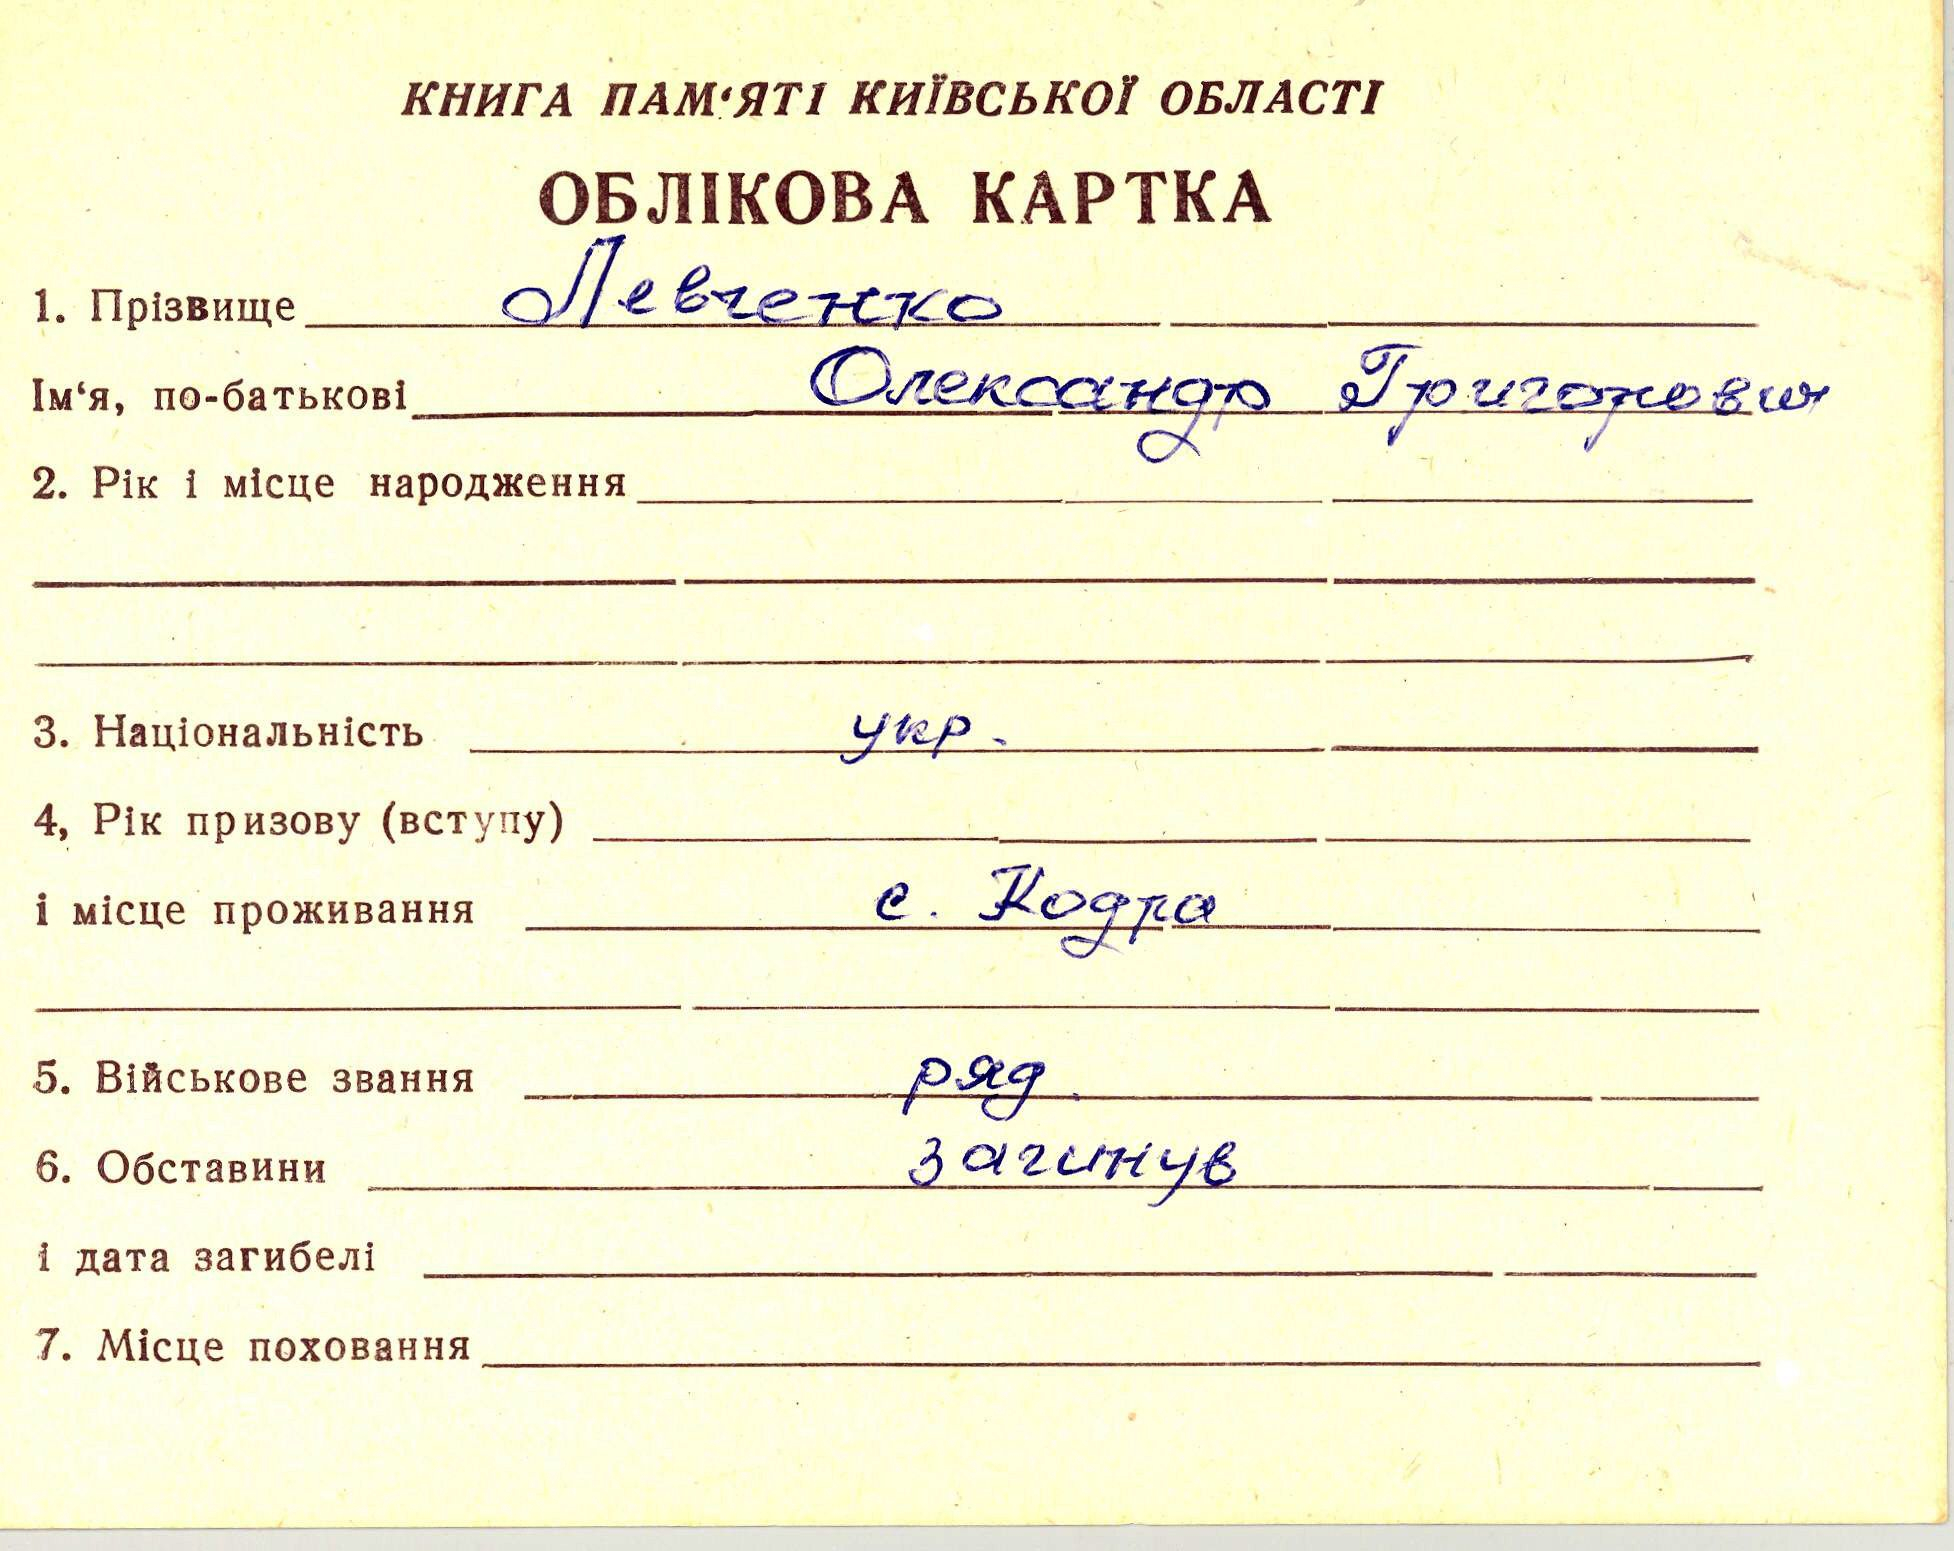 КНИГА ПАМ‘ЯТІ КИЇВСЬКОЇ ОБЛАСТІ
ОБЛІКОВА КАРТКА
1. Прізвище Левченко
Ім‘я, по-батькові Олександр Григорович
2. Рік і місце народження
3. Національність укр.
4, Рік призову (вступу)
і місце проживання с. Кодра
5. Військове звання ряд.
6. Обставини загинув
і дата загибелі
7. Місце поховання